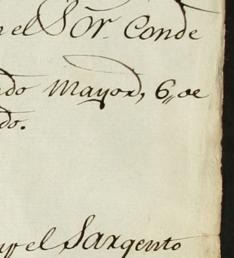 el Sor. Conde
Mayor, 6,, de
do.
el Sargento